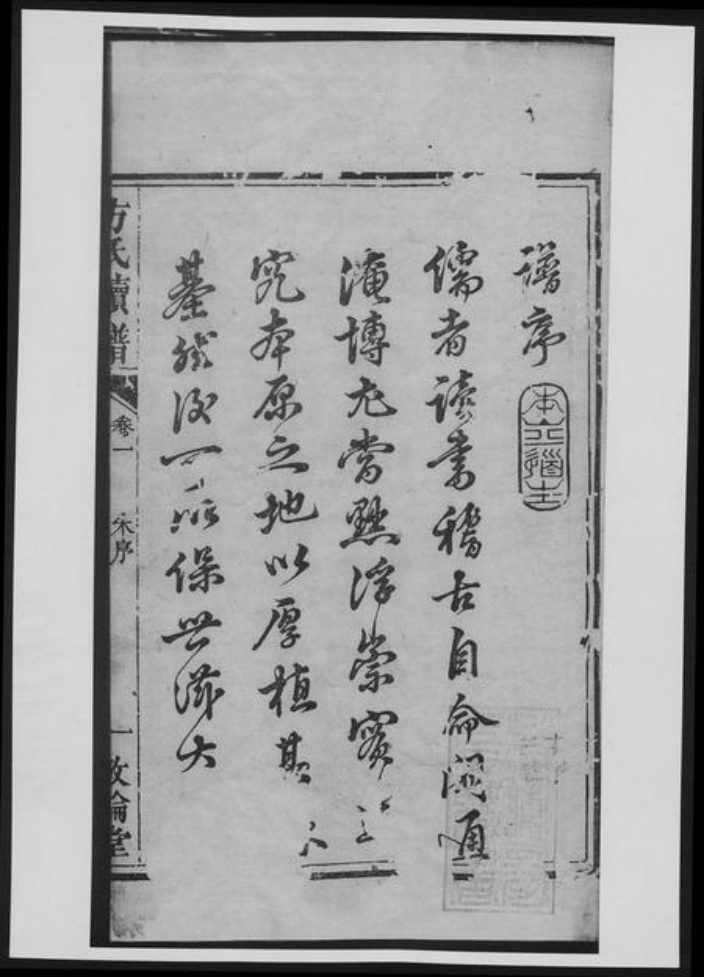 譜序
本立道生
儒者读書稽古自命闳通
淹博尤當黜浮崇實
究本原之地以厚植其
基然後可以保世滋大
方氏續譜
卷一
朱序
一
敦倫堂